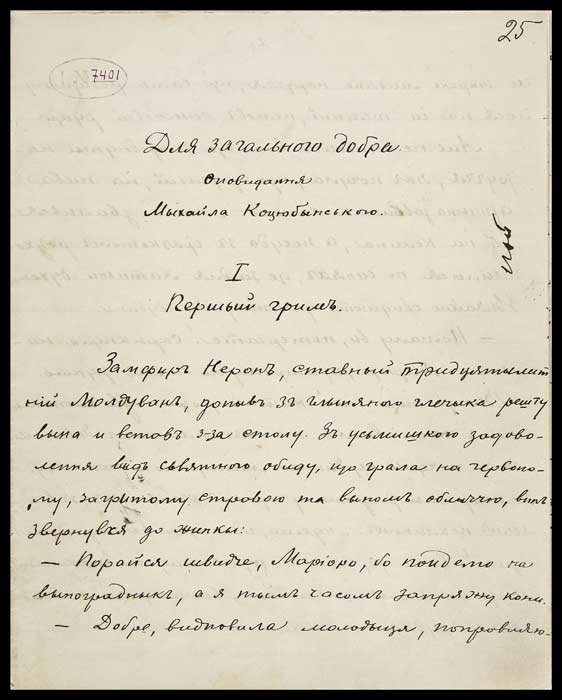 25
7401
Для загального добра.
Оповидання
Мыхайла Коцюбынського.
I
Першый гримъ.
Замфиръ Неронъ, ставный тридцятылит
ній Молдуванъ, допывъ зъ глыняного глечыка решту
вына и вставъ з-за столу. Зъ усьмишкою задово-
лення видъ сьвятного обиду, що грала на червоно-
му, загритому стравою та выномъ облыччю, винъ
звернувся до жинкы:
— Порайся швидче, Маріоро, бо поидемо на
выноградныкъ, а я тымъ часомъ запряжу кони.
— Добре, видповила молодыця, поправляю-